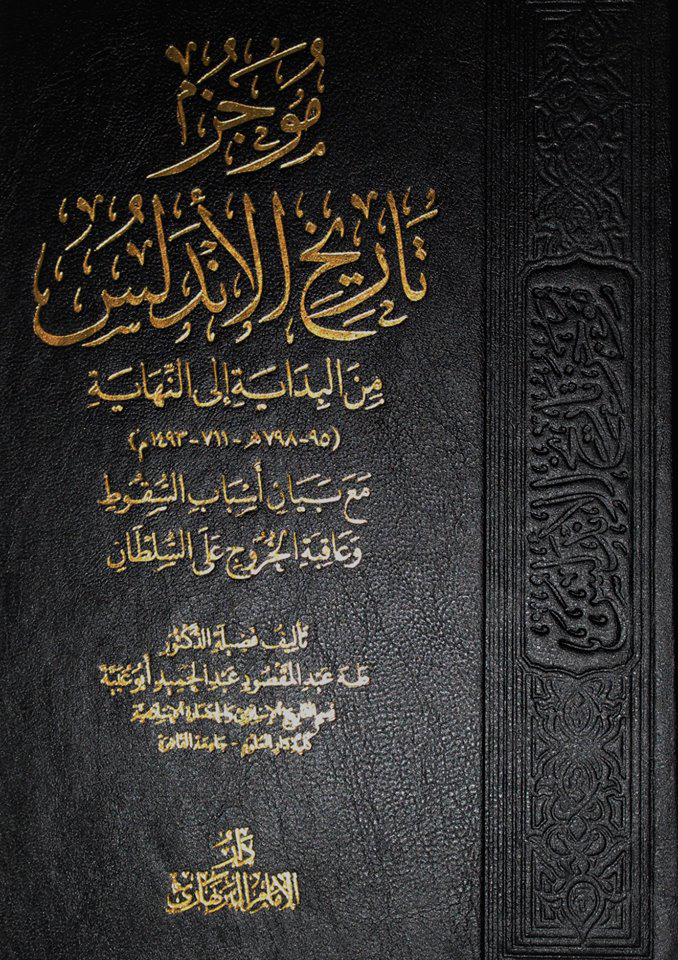 مُوجَز
تَارِيخِ الأَنْدَلُسِ
مِنَ البِدَايَةِ إِلَى النِّهَايَةِ
(٩٥-٧٩٨هـ-٧١١-١٤٩٣م)
مَعَ بَيَانِ أَسْبَابِ السُّقُوطِ
وَعَاقِبَةِ الخُرُوجِ عَلَى السُّلْطَانِ
تأليف فضيلة الدكتور
طه عبد المقصود عبد الحميد أبو عبية
قسم التاريخ الإسلامي والحضارة الإسلامية
كلية دار العلوم - جامعة القاهرة
دار
الإمام البربهاري
موجز تاريخ الأندلس